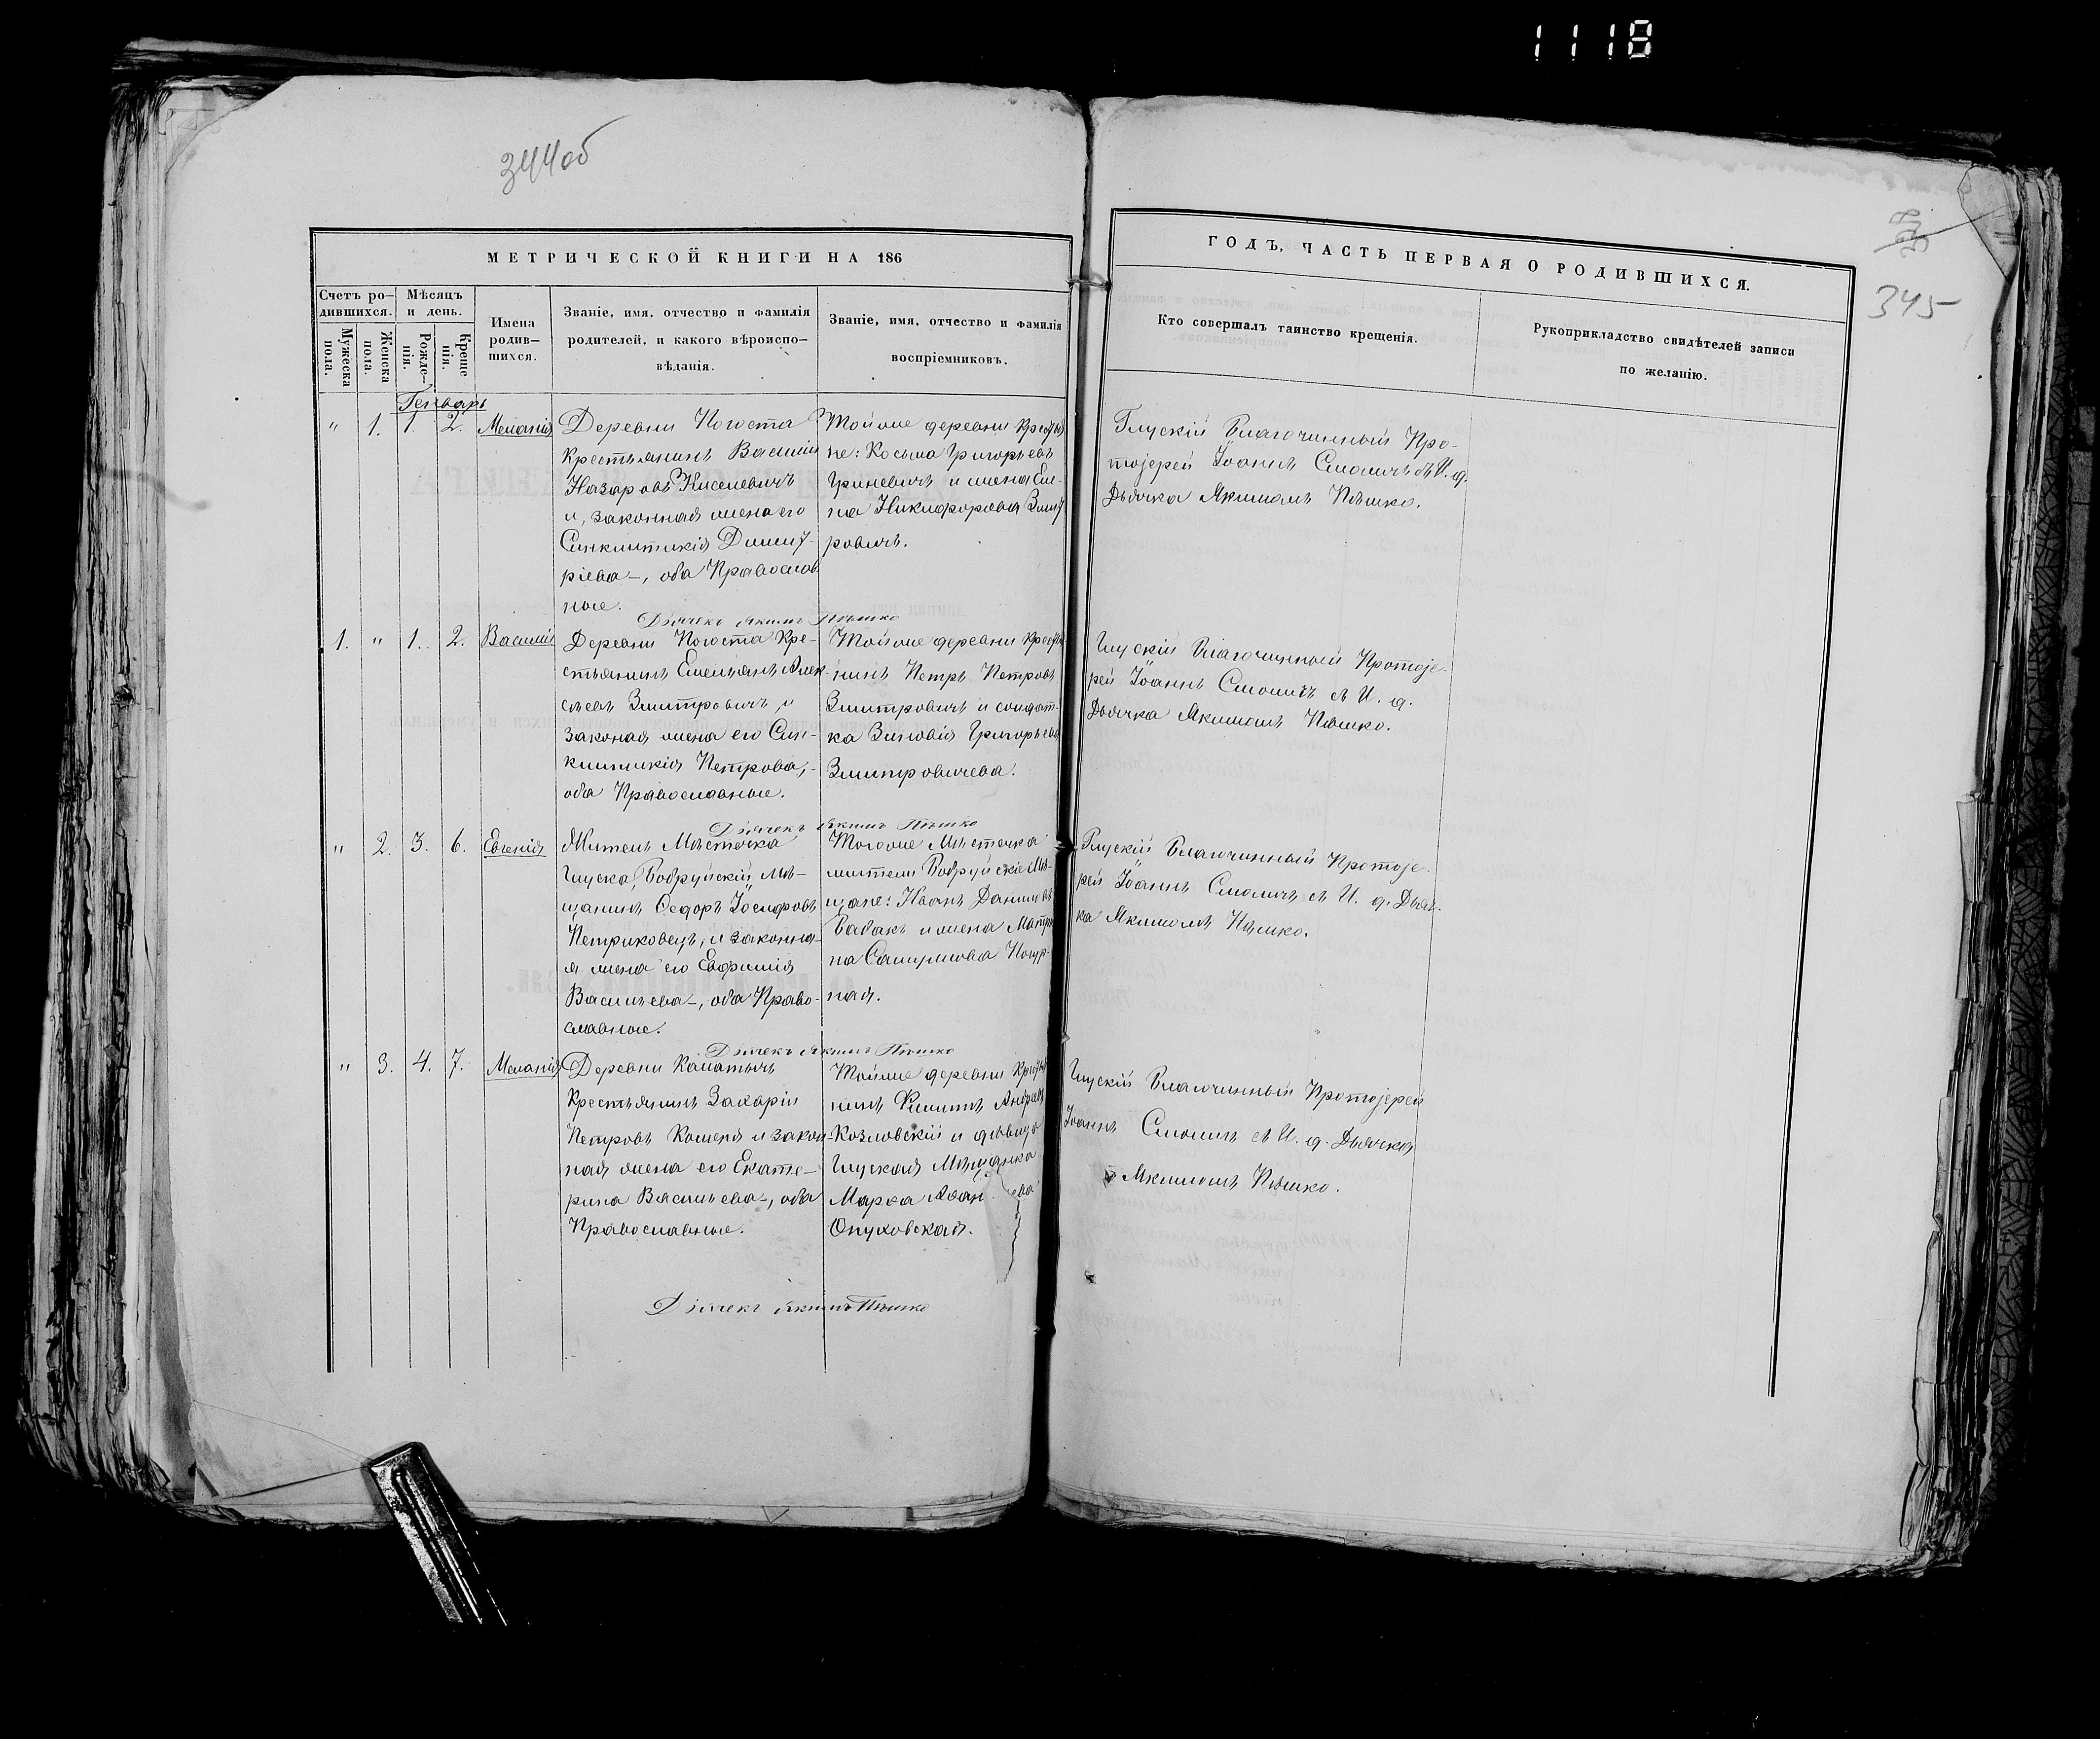 1118
344об
345
МЕТРИЧЕСКОЙ КНИГИ НА 186
ГОДЪ, ЧАСТЬ ПЕРВАЯ О РОДИВШИХСЯ.
Счетъ ро-
дившихся.
Мужеска
пола.
Женска
пола.
Мѣсяцъ
и день.
Рожде-
нія.
Креще
нія.
Имена
родив-
шихся.
Званіе, имя, отчество и фамилія
родителей, и какого вѣроиспо-
вѣданія.
Званіе, имя, отчество и фамилія
воспріемниковъ.
Кто совершалъ таинство крещенія.
Рукоприкладство свидѣтелей записи
по желанію.
Генварь
" 1. 1. 2. Меланія
Деревни Погоста
Крестьянинъ Василій
Назаровъ Киселевичъ
и, законная жена его
Синклитикія Димит-
ріева, оба Православ
ные.
Тойже деревни
не: Косьма Григорьевъ
Гриневичъ и жена Еле-
на Никифорова Змит
ровичъ.
Глускій Благочинный Про-
тоіерей Іоаннъ Смоличъ съ И. д.
Дьячка Якимомъ Пѣшко.
Дьячекъ Якимъ Пѣшко
1. " 1. 2. Василій
Деревни Погоста Кре-
стьянинъ Емельянъ Алек-
сѣевъ Змитровичъ, и
законая жена его Син-
клитикія Петрова,
оба Православные.
Тойже деревни
нинъ Петръ Петровъ
Змитровичъ и солдат-
ка Зиновія Григорьева
Змитровичева.
Глускій Благочинный Протоіе-
рей Іоаннъ Смоличъ съ И. д.
Дьячка Якимомъ Пѣшко.
Дьячекъ Якимъ Пѣшко
" 2. 3. 6. Евгенія
Житель Мѣстечка
Глуска, Бобруйскій Мѣ-
щанинъ Ѳедоръ Іосифовъ
Петриковецъ, и законна-
я жена его Евфимія
Васильева, оба Право-
славные.
Тогоже Мѣстечка
жители Бобруйскіе Мѣ-
щане: Иванъ Даниловъ
Бабакъ и жена Матре
на Самуилова
ная.
Глускій Благочинный Протоіе-
рей Іоаннъ Смоличъ съ И. д. Дьяч-
ка Якимомъ Пѣшко.
Дьячекъ Якимъ Пѣшко
" 3. 4. 7. Меланія
Деревни Калатичъ
Крестьянинъ Захарій
Петровъ Кошеля и закон-
ная жена его Екате-
рина Васильева, оба
Православные.
Тойже деревни
нинъ Филиппъ Андреевъ
Козловскій и дѣвица
Глуская Мѣщанка
Марѳа
Опуховская.
Глускій Благочинный Протоіерей
Іоаннъ Смоличъ съ И. д. Дьячка
Якимомъ Пѣшко.
Дьячекъ Якимъ Пѣшко